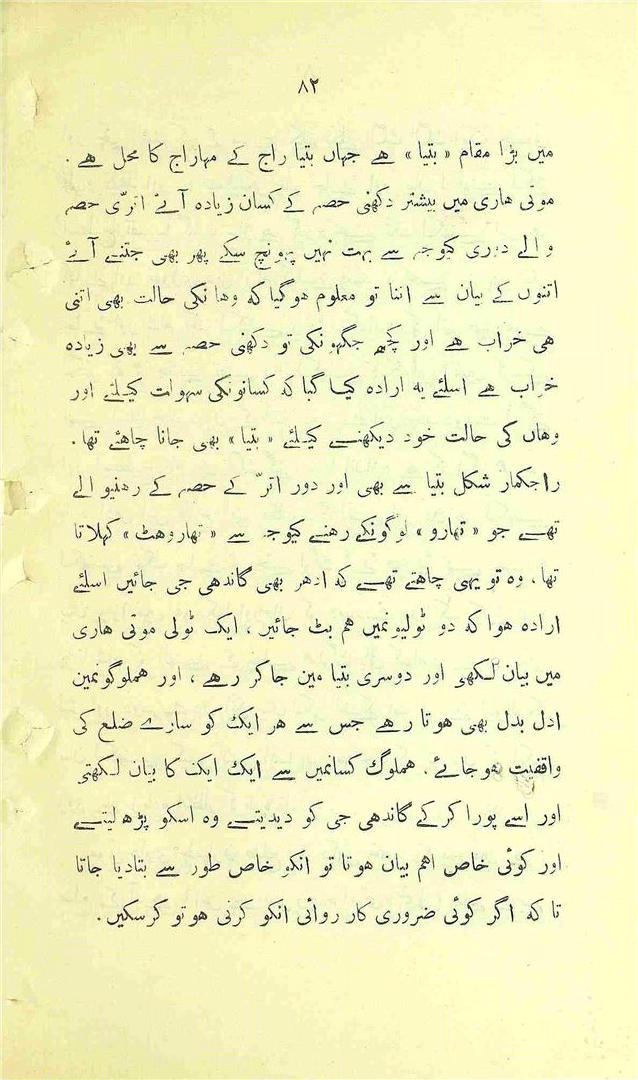 ۸۲
میں بڑا مقام « بتیا » ھے جہاں بتیا راج کے مہاراج کا محل ھے .
موتی ھاری میں بیشتر دکھنی حصہ کے کسان زیادہ آئے اترّی حصہ
والے دوری کیوجہ سے بہت نہیں پہونچ سکے پھر بھی جتنے آئے
اتنوں کے بیان سے اتنا تو معلوم ھوگیا کہ وھانکی حالت بھی اتنی
ھی خراب ھے اور کچھ جگہونکی تو دکھنی حصہ سے بھی زیادہ
خراب ھے اسلئے یہ ارادہ کیا گیا کہ کسانونکی سہولت کیلئے اور
وھاں کی حالت خود دیکھنے کیلئے « بتیا » بھی جانا چاھئے تھا .
راجکمار شکل بتیا سے بھی اور دور اترّ کے حصہ کے رھنیوالے
تھے جو « تھارو » لوگونکے رھنے کیوجہ سے « تھاروھٹ » کہلاتا
تھا ، وہ تو یہی چاھتے تھے کہ ادھر بھی گاندھی جی جائیں اسلئے
ارادہ ھوا کہ دو ٹولیونمیں ھم بٹ جائیں ، ایک ٹولی موتی ھاری
میں بیان لکھی اور دوسری بتیا مین جا کر رھے ، اور ھملوگونمین
ادل بدل بھی ھوتا رھے جس سے ھر ایک کو سارے ضلع کی
واقفیت ھوجائے . ھملوگ کسانمیں سے ایک ایک کا بیان لکھتی
اور اسے پورا کرکے گاندھی جی کو دیدیتے وہ اسکو پڑھ لیتے
اور کوئی خاص اھم بیان ھوتا تو انکو خاص طور سے بتادیا جاتا
تا کہ اگر کوئی ضروری کار روائی انکو کرنی ھو تو کرسکیں .